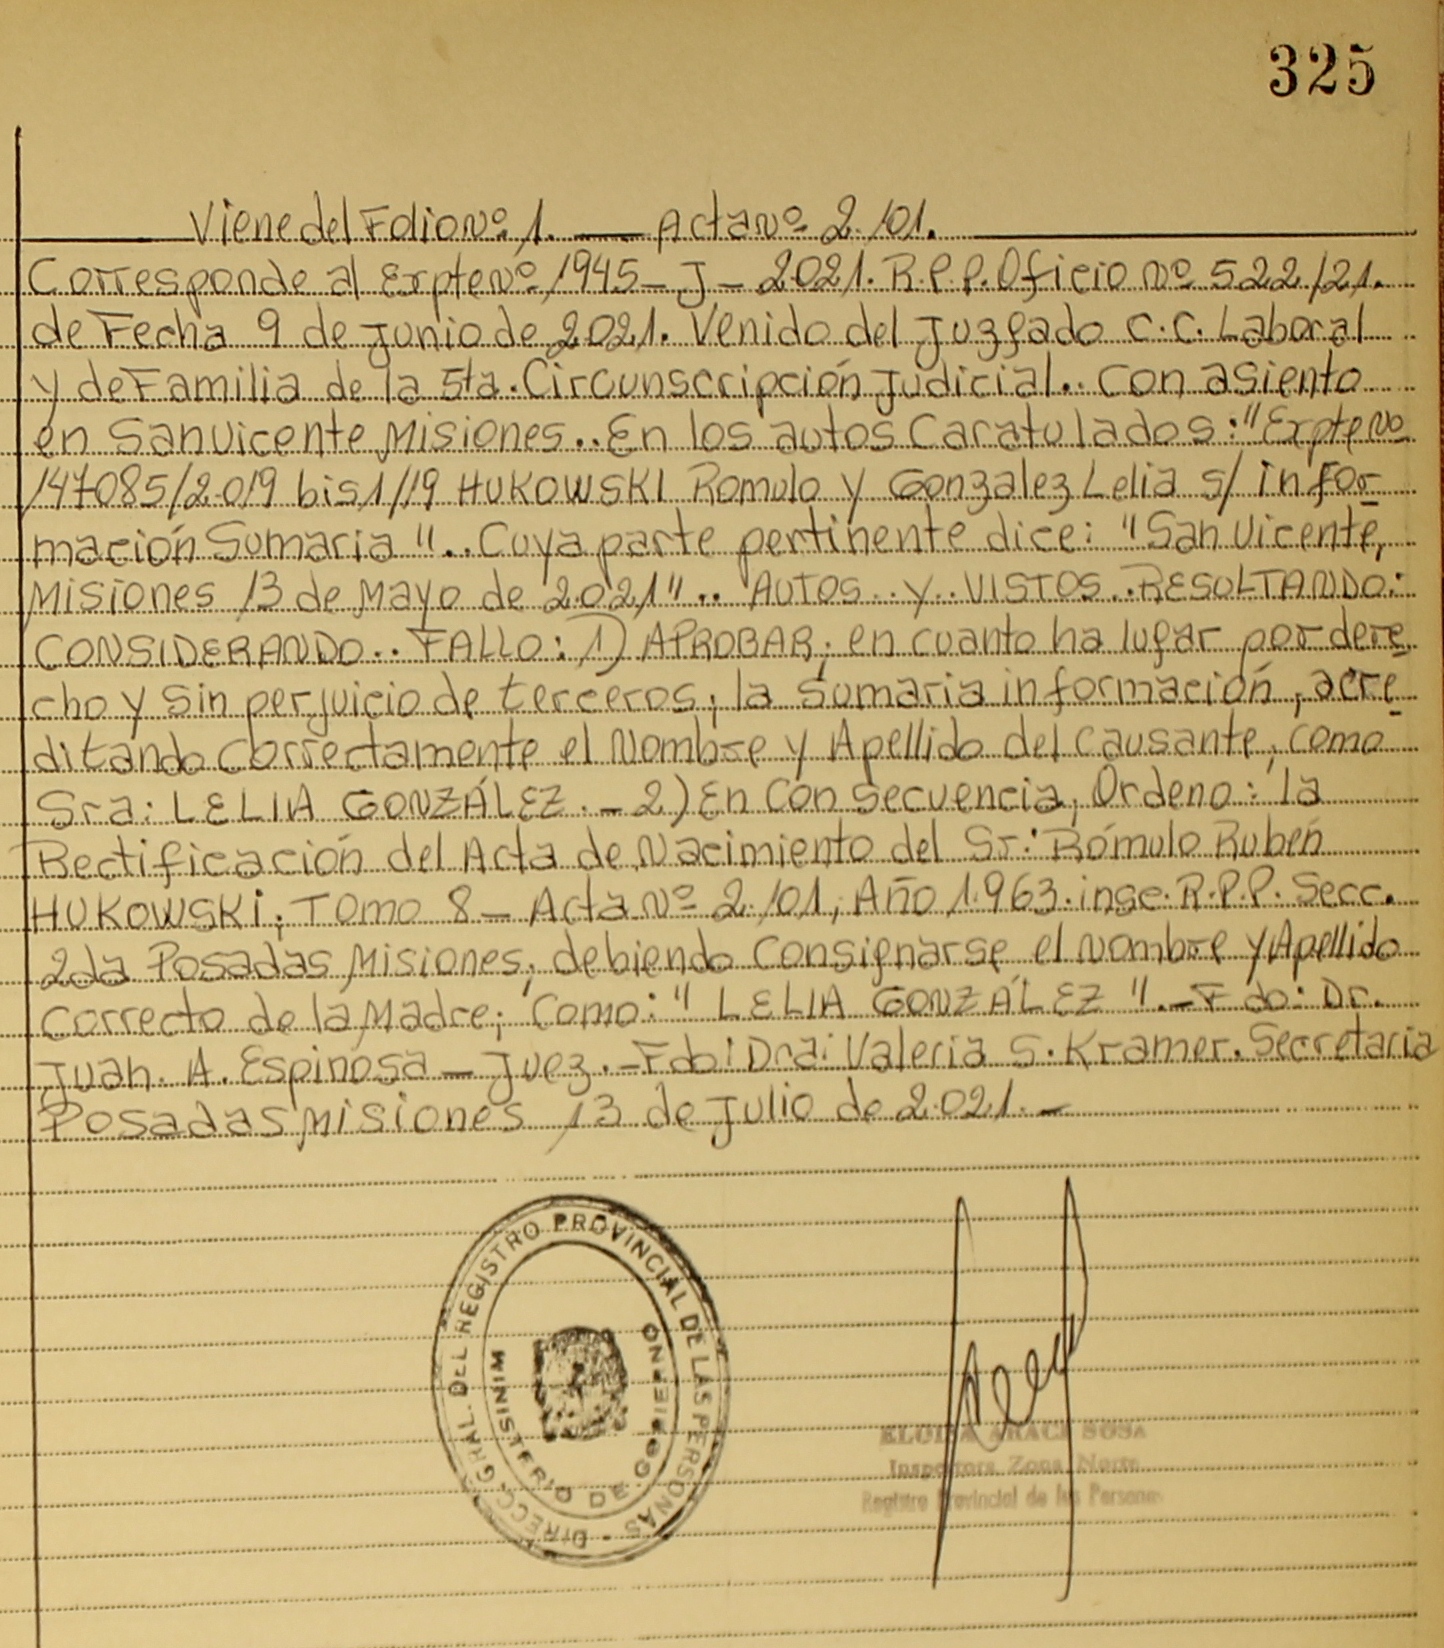 325
Viene del Folio Nº 1. — Acta Nº 2.101.
Corresponde al Expte Nº 1945-J-2021. R.P.P. Oficio Nº 522/21.
de Fecha 9 de Junio de 2021. Venido del Juzgado C.C. Laboral
y de Familia de la 5ta. Circunscripción Judicial.. Con asiento
en San Vicente Misiones.. En los autos Caratulados: "Expte Nº
147085/2019 bis 1/19 HUKOWSKI Romulo y Gonzalez Lelia s/ infor-
mación Sumaria".. Cuya parte pertinente dice: "San Vicente,
Misiones 13 de Mayo de 2021".. AUTOS y VISTOS.. RESULTANDO:
CONSIDERANDO.. FALLO: 1) APROBAR; en cuanto ha lugar por dere-
cho y sin perjuicio de terceros; la sumaria información, acre-
ditando correctamente el Nombre y Apellido del causante, como
Sra: LELIA GONZÁLEZ.- 2) En Consecuencia, Ordeno: la
Rectificación del Acta de Nacimiento del Sr: Rómulo Rubén
HUKOWSKI; Tomo 8- Acta Nº 2.101, Año 1963. insc. R.P.P. Secc.
2da Posadas Misiones; debiendo Consignarse el Nombre y Apellido
Correcto de la Madre; Como: "LELIA GONZÁLEZ".- Fdo: Dr.
Juan. A. Espinosa - Juez.- Fdo: Dra: Valeria S. Kramer. Secretaria
Posadas Misiones 13 de Julio de 2021.-
DIRECC. GRAL. DEL REGISTRO PROVINCIAL DE LAS PERSONAS -
MINISTERIO DE GOBIERNO
ELOISA ARACI SOSA
Inspectora Zona Norte
Registro Provincial de las Personas